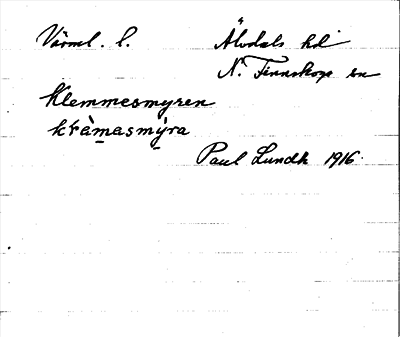 Värml. l. Älvdals hd
N. Finnskoga sn
Klemmesmyren
kràmasmýra
Paul Lundh 1916.